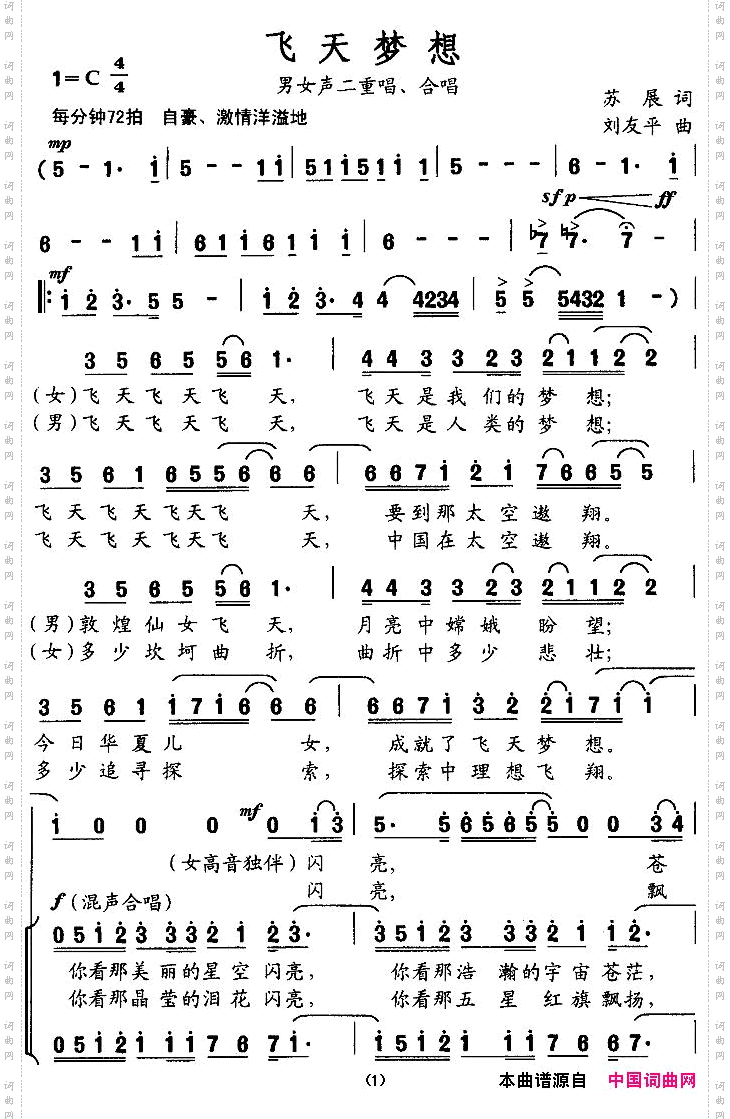 飞天梦想
男女声二重唱、合唱
1=C 4/4
苏展词
每分钟72拍 自豪、激情洋溢地
刘友平曲
mp
(5 - 1· i | 5 - - 1 i | 5 1 i 5 1 5 i i | 5 - - - | 6 - 1· i |
sfp ff
6 - - 1 i | 6 1 i 6 1 i i i | 6 - - - | ♭7 ♭7· 7 - |
mf
‖: i 2 3· 5 5 | 5 - - - | i 2 3· 4 4 4 4234 | 5 5 5432 1 - )
3 5 6 5 5 6 1· | 4 4 3 3 2 3 2 1 1 2 2
(女)飞天飞天飞天， 飞天是我们的梦想；
(男)飞天飞天飞天， 飞天是人类的梦想；
3 5 6 1 6 5 5 6 6 6 | 6 6 7 i 2 i 7 6 6 5 5
飞天飞天飞天飞天， 要到那太空遨翔。
飞天飞天飞天飞天， 中国在太空遨翔。
3 5 6 5 5 6 1· | 4 4 3 3 2 3 2 1 1 2 2
(男)敦煌仙女飞天， 月亮中嫦娥盼望；
(女)多少坎坷曲折， 曲折中多少悲壮；
3 5 6 1 i 7 i 6 6 6 | 6 6 7 i 3 2 2 i 7 i i
今日华夏儿女， 成就了飞天梦想。
多少追寻探索， 探索中理想飞翔。
mf
i 0 0 0 0 i 3 | 5· 5 6 5 6 5 5 0 0 3 4
(女高音独伴)闪亮， 苍
闪亮， 飘
f (混声合唱)
0 5 i 2 3 3 3 2 i 2 3· | 3 5 i 2 3 3 3 2 i 2
你看那美丽的星空闪亮， 你看那浩瀚的宇宙苍茫，
你看那晶莹的泪花闪亮， 你看那五星红旗飘扬，
0 5 i 2 i i i 7 6 7 i· | i 5 i 2 i i i 7 6 6 7·
(1)
本曲谱源自 中国词曲网
词曲网